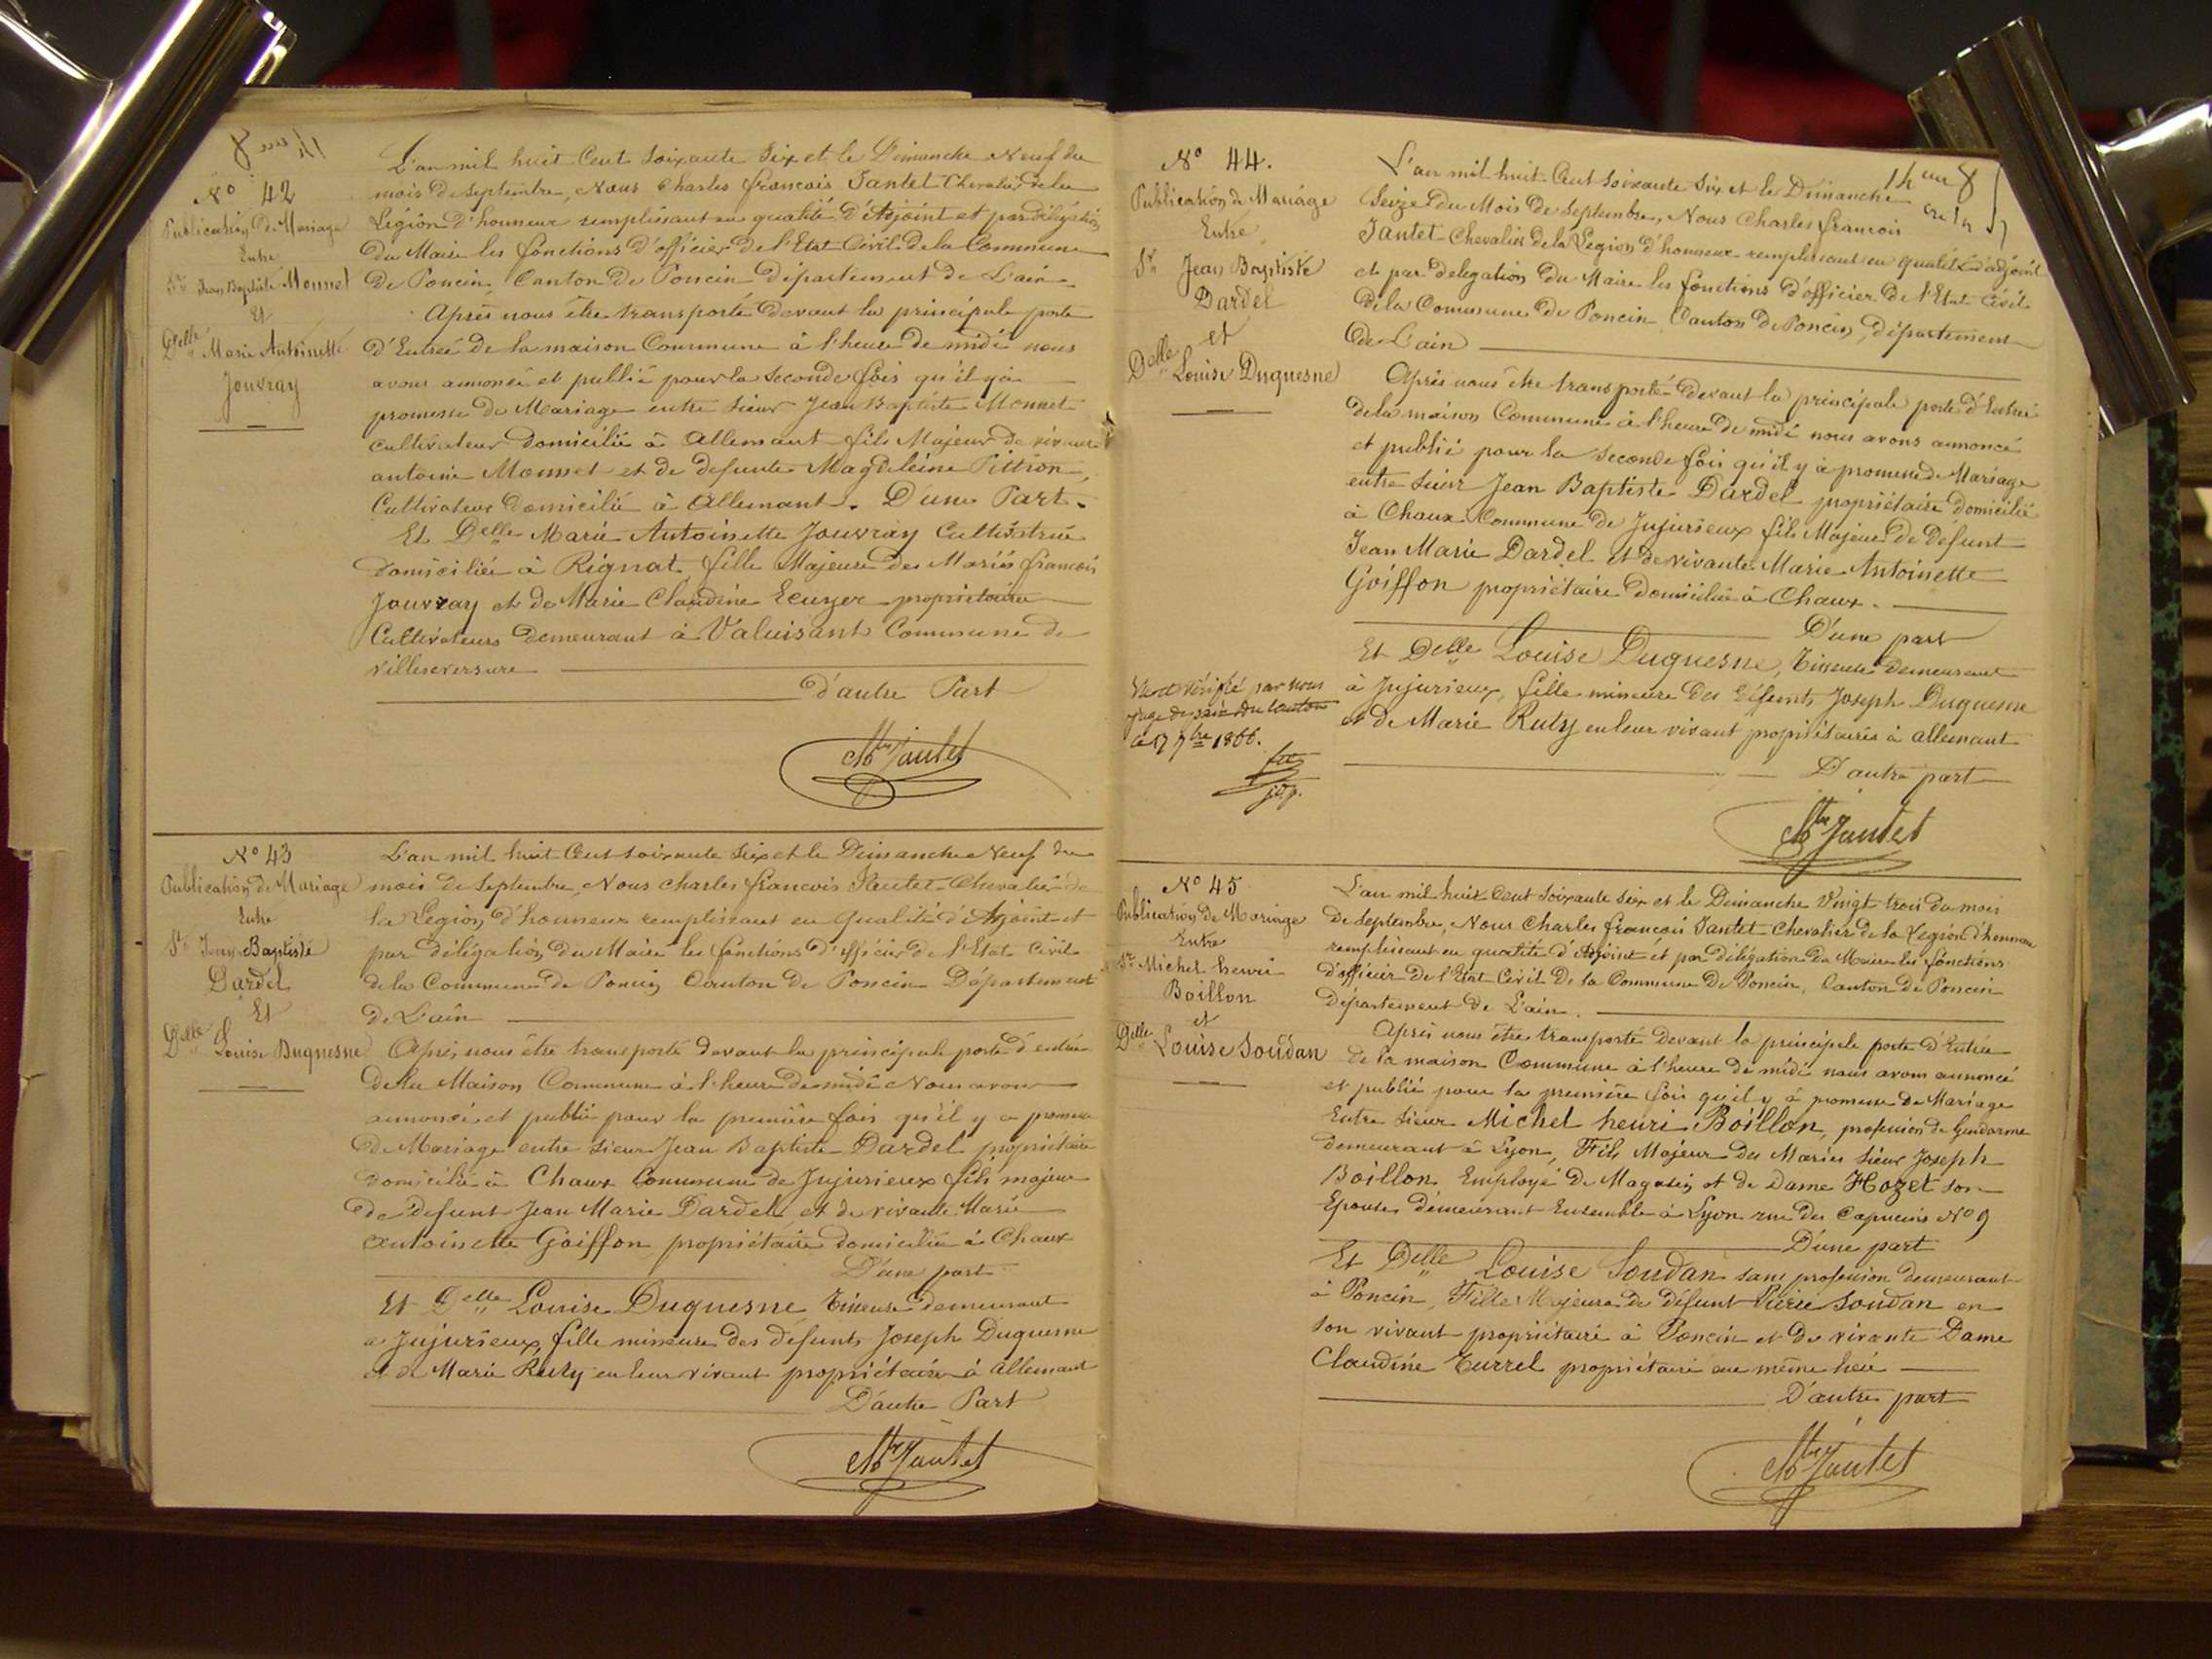 N° 42
Publication de Mariage
Entre
Sr Jean Baptiste Monnet
Et
Delle Marie Antoinette
Jouvray
L'an mil huit Cent soixante Six et le Dimanche Neuf du
mois de Septembre, Nous Charles françois Jantet Chevalier de la
Légion d'honneur remplissant en qualité d'Adjoint et par délégation
du Maire les fonctions d'officier de l'Etat Civil de la Commune
de Poncin, Canton de Poncin département de L'ain.
Après nous être transporté devant la principale porte
d'Entrée de la maison Commune à l'heure de midi nous
avons annoncé et publié pour la seconde fois qu'il y a
promesse de Mariage entre sieur Jean Baptiste Monnet
cultivateur domicilié à Allemant fils Majeur de vivant
antoine Monnet et de defunte Magdeleine Pittion,
Cultivateur domicilié à Allemant. D'une Part.
Et Delle Marie Antoinette Jouvray Cultivatrice
domiciliée à Rignat fille Majeure des Mariés françois
Jouvray et de Marie Claudine Ecuyer propriétaire
Cultivateurs demeurant à Valuisant Commune de
villereversure
d'autre Part
Jantet
N° 43
Publication de Mariage
Entre
Sr Jean Baptiste
Dardel
Et
Delle Louise Duquesne
L'an mil huit Cent soixante Six et le Dimanche Neuf du
mois de Septembre, Nous charles françois Jantet Chevalier de
la Légion d'honneur remplissant en qualité d'Adjoint et
par délégation du Maire les fonctions d'officier de l'Etat Civil
de la Commune de Poncin Canton de Poncin Département
de L'ain
Après nous être transporté devant la principale porte d'entrée
de la Maison Commune à l'heure de midi Nous avons
annoncé et publié pour la première fois qu'il y a promesse
de Mariage entre sieur Jean Baptiste Dardel propriétaire
domicilié à Chaux Commune de Jujurieux fils majeur
de defunt Jean Marie Dardel et de vivante Marie
Antoinette Goiffon propriétaire domiciliée à Chaux
D'une part
Et Delle Louise Duquesne Tisseuse demeurant
a Jujurieux, fille mineure des défunts Joseph Duquesne
et de Marie Ruty en leur vivant propriétaires à Allemant
D'autre Part
Jantet
N° 44.
Publication de Mariage
Entre
Sr Jean Baptiste
Dardel
et
Delle Louise Duquesne
Vu et vérifié par nous
juge de paix du Canton
ce 17 7bre 1866.
j.d.p.
14 8
L'an mil huit Cent soixante Six et le Dimanche
Seize du Mois de Septembre, Nous Charles françois
Jantet Chevalier de la Légion d'honneur remplissant en qualité d'adjoint
et par delegation du Maire les fonctions d'officier de l'Etat Civil
de la Commune de Poncin Canton de Poncin, département
de L'ain
Après nous être transporté devant la principale porte d'Entrée
de la maison Commune à l'heure de midi nous avons annoncé
et publié pour la seconde fois qu'il y à promesse de Mariage
entre sieur Jean Baptiste Dardel propriétaire domicilié
à Chaux Commune de Jujurieux fils Majeur de Défunt
Jean Marie Dardel et de vivante Marie Antoinette
Goiffon propriétaire domiciliée à Chaux.
D'une part
Et Delle Louise Duquesne, Tisseuse demeurant
à Jujurieux, fille mineure des défunts Joseph Duquesne
et de Marie Ruty en leur vivant propriétaires à allemant
D'autre part
Jantet
N° 45
Publication de Mariage
Entre
Sr Michel henri
Boillon
et
Delle Louise Soudan
L'an mil huit Cent soixante Six et le Dimanche Vingt trois du mois
de Septembre, Nous Charles françois Jantet Chevalier de la Légion d'honneur
remplissant en qualité d'Adjoint et par délégation du Maire les fonctions
d'officier de l'Etat Civil de la Commune de Poncin, Canton de Poncin
département de L'ain.
Après nous être transporté devant la principale porte d'Entrée
de la maison Commune à l'heure de midi nous avons annoncé
et publié pour la première fois qu'il y à promesse de Mariage
Entre sieur Michel henri Boillon, profession de Gendarme
demeurant à Lyon, Fils Majeur des Mariés sieur Joseph
Boillon Employé de Magasin et de Dame Hozet son
Epouse, demeurant Ensemble à Lyon rue des Capucins N° 9
D'une part
Et Delle Louise Soudan sans profession demeurant
à Poncin, Fille Majeure de défunt Pierre Soudan en
son vivant propriétaire à Poncin et de vivante Dame
Claudine Turrel propriétaire au même lieu
D'autre part
Jantet